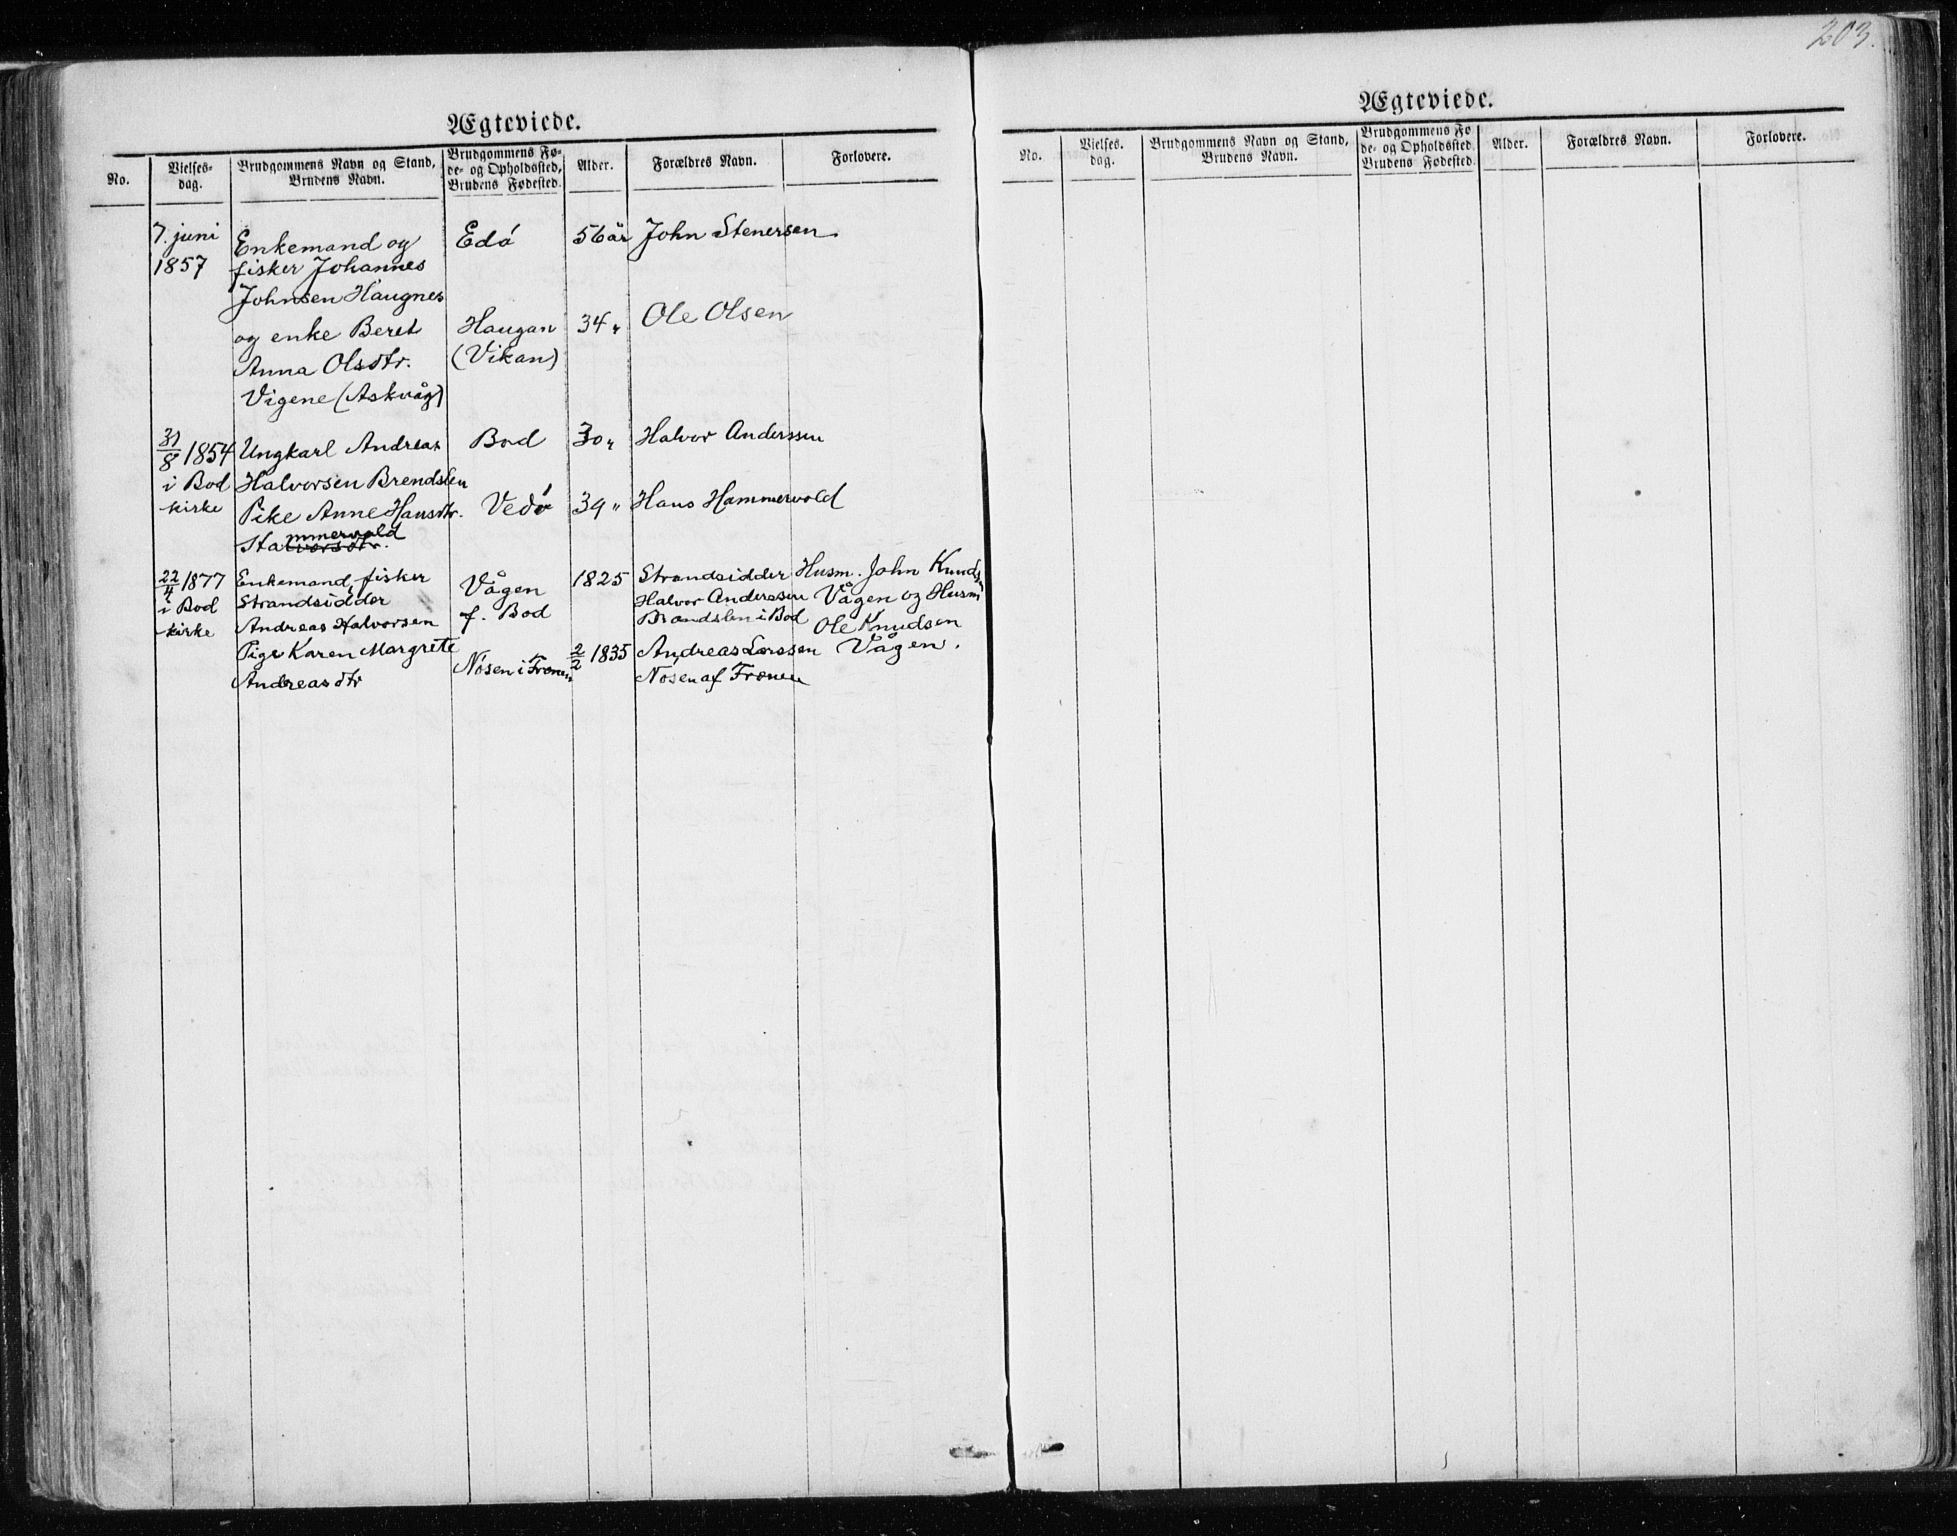 203.
Ægteviede.
No.
Vielses-
dag.
Brudgommens Navn og Stand,
Brudens Navn.
Brudgommens Fø-
de- og Opholdssted,
Brudens Fødested.
Alder.
Forældres Navn.
Forlovere.
7. juni
1857
Enkemand og
fisker Johannes
Johnsen Haugnes
og enke Beret
Anna Olsdtr.
Vigene (Askvåg)
Edø
Haugan
(Vikan)
56 år
34 "
John Stenersen
Ole Olsen
31/8 1854
i Bod
kirke
Ungkarl Andreas
Halvorsen Brendslen
Pike Anne Hansdtr.
mmervold
Halvorsdtr.
Bod
Vedø
30 "
39 "
Halvor Anderssen
Hans Hammervold
22/4 1877
i Bod
kirke
Enkemand, fisker
Strandsidder
Andreas Halvorsen
Pige Karen Margrete
Andreasdtr
Vågen
f. Bod
Nösen i Frænen
1825
2/2 1835
Strandsidder
Halvor Anderssen
Brandslen i Bod
Andreas Larssen
Nosen af Frænen
Husm. John Knudsen
Vågen og Husm
Ole Knudsen
Vågen.
Ægteviede.
No.
Vielses.
dag.
Brudgommens Navn og Stand,
Brudens Navn.
Brudgommens Fø
de- og Opholdssted,
Brudens Fødested.
Alder.
Forældres Navn.
Forlovere.